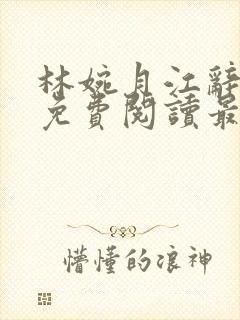 林婉月江辭
免費閱讀最
懵懂的浪神